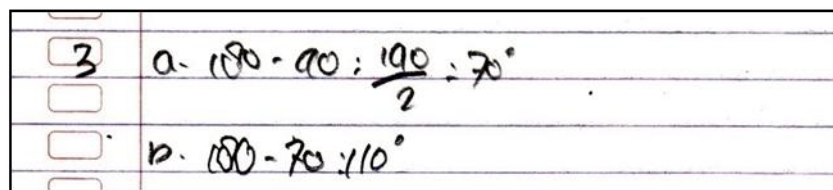 3 a. 180 - 40 : 140/2 : 70°
b. 180 - 70 : 110°